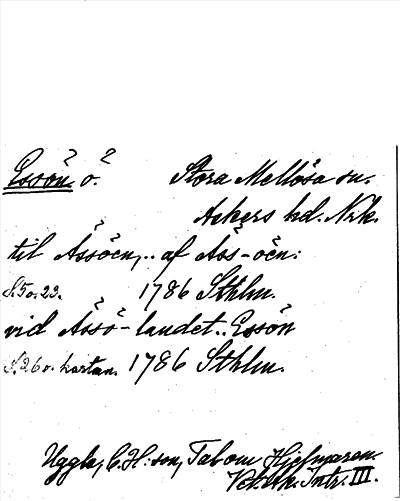 Essön ö. Stora Mellösa sn.
Askers hd. Nrk.
til Åssöen,.. af Åss-öen:
S. 50. 23. 1786 Sthlm.
vid Åssö-landet.. Essön
S. 26 o. kartan. 1786 Sthlm.
Uggla, C. H:son, Tal om Hjelmaren.
Vet. ak. Intr. III.